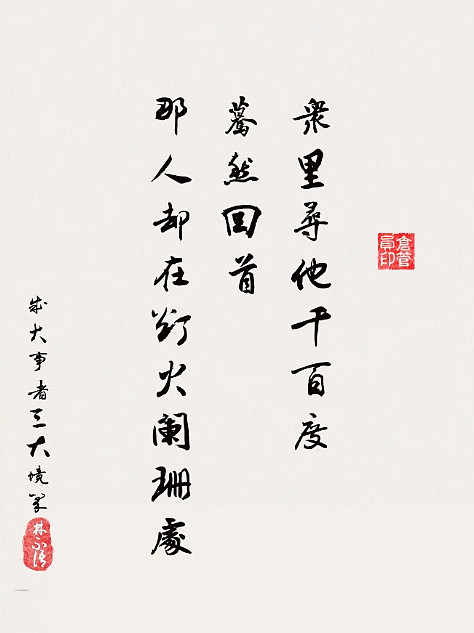 衆里尋他千百度
驀然回首
那人却在灯火闌珊處
成大事者三大境界
倉管員印